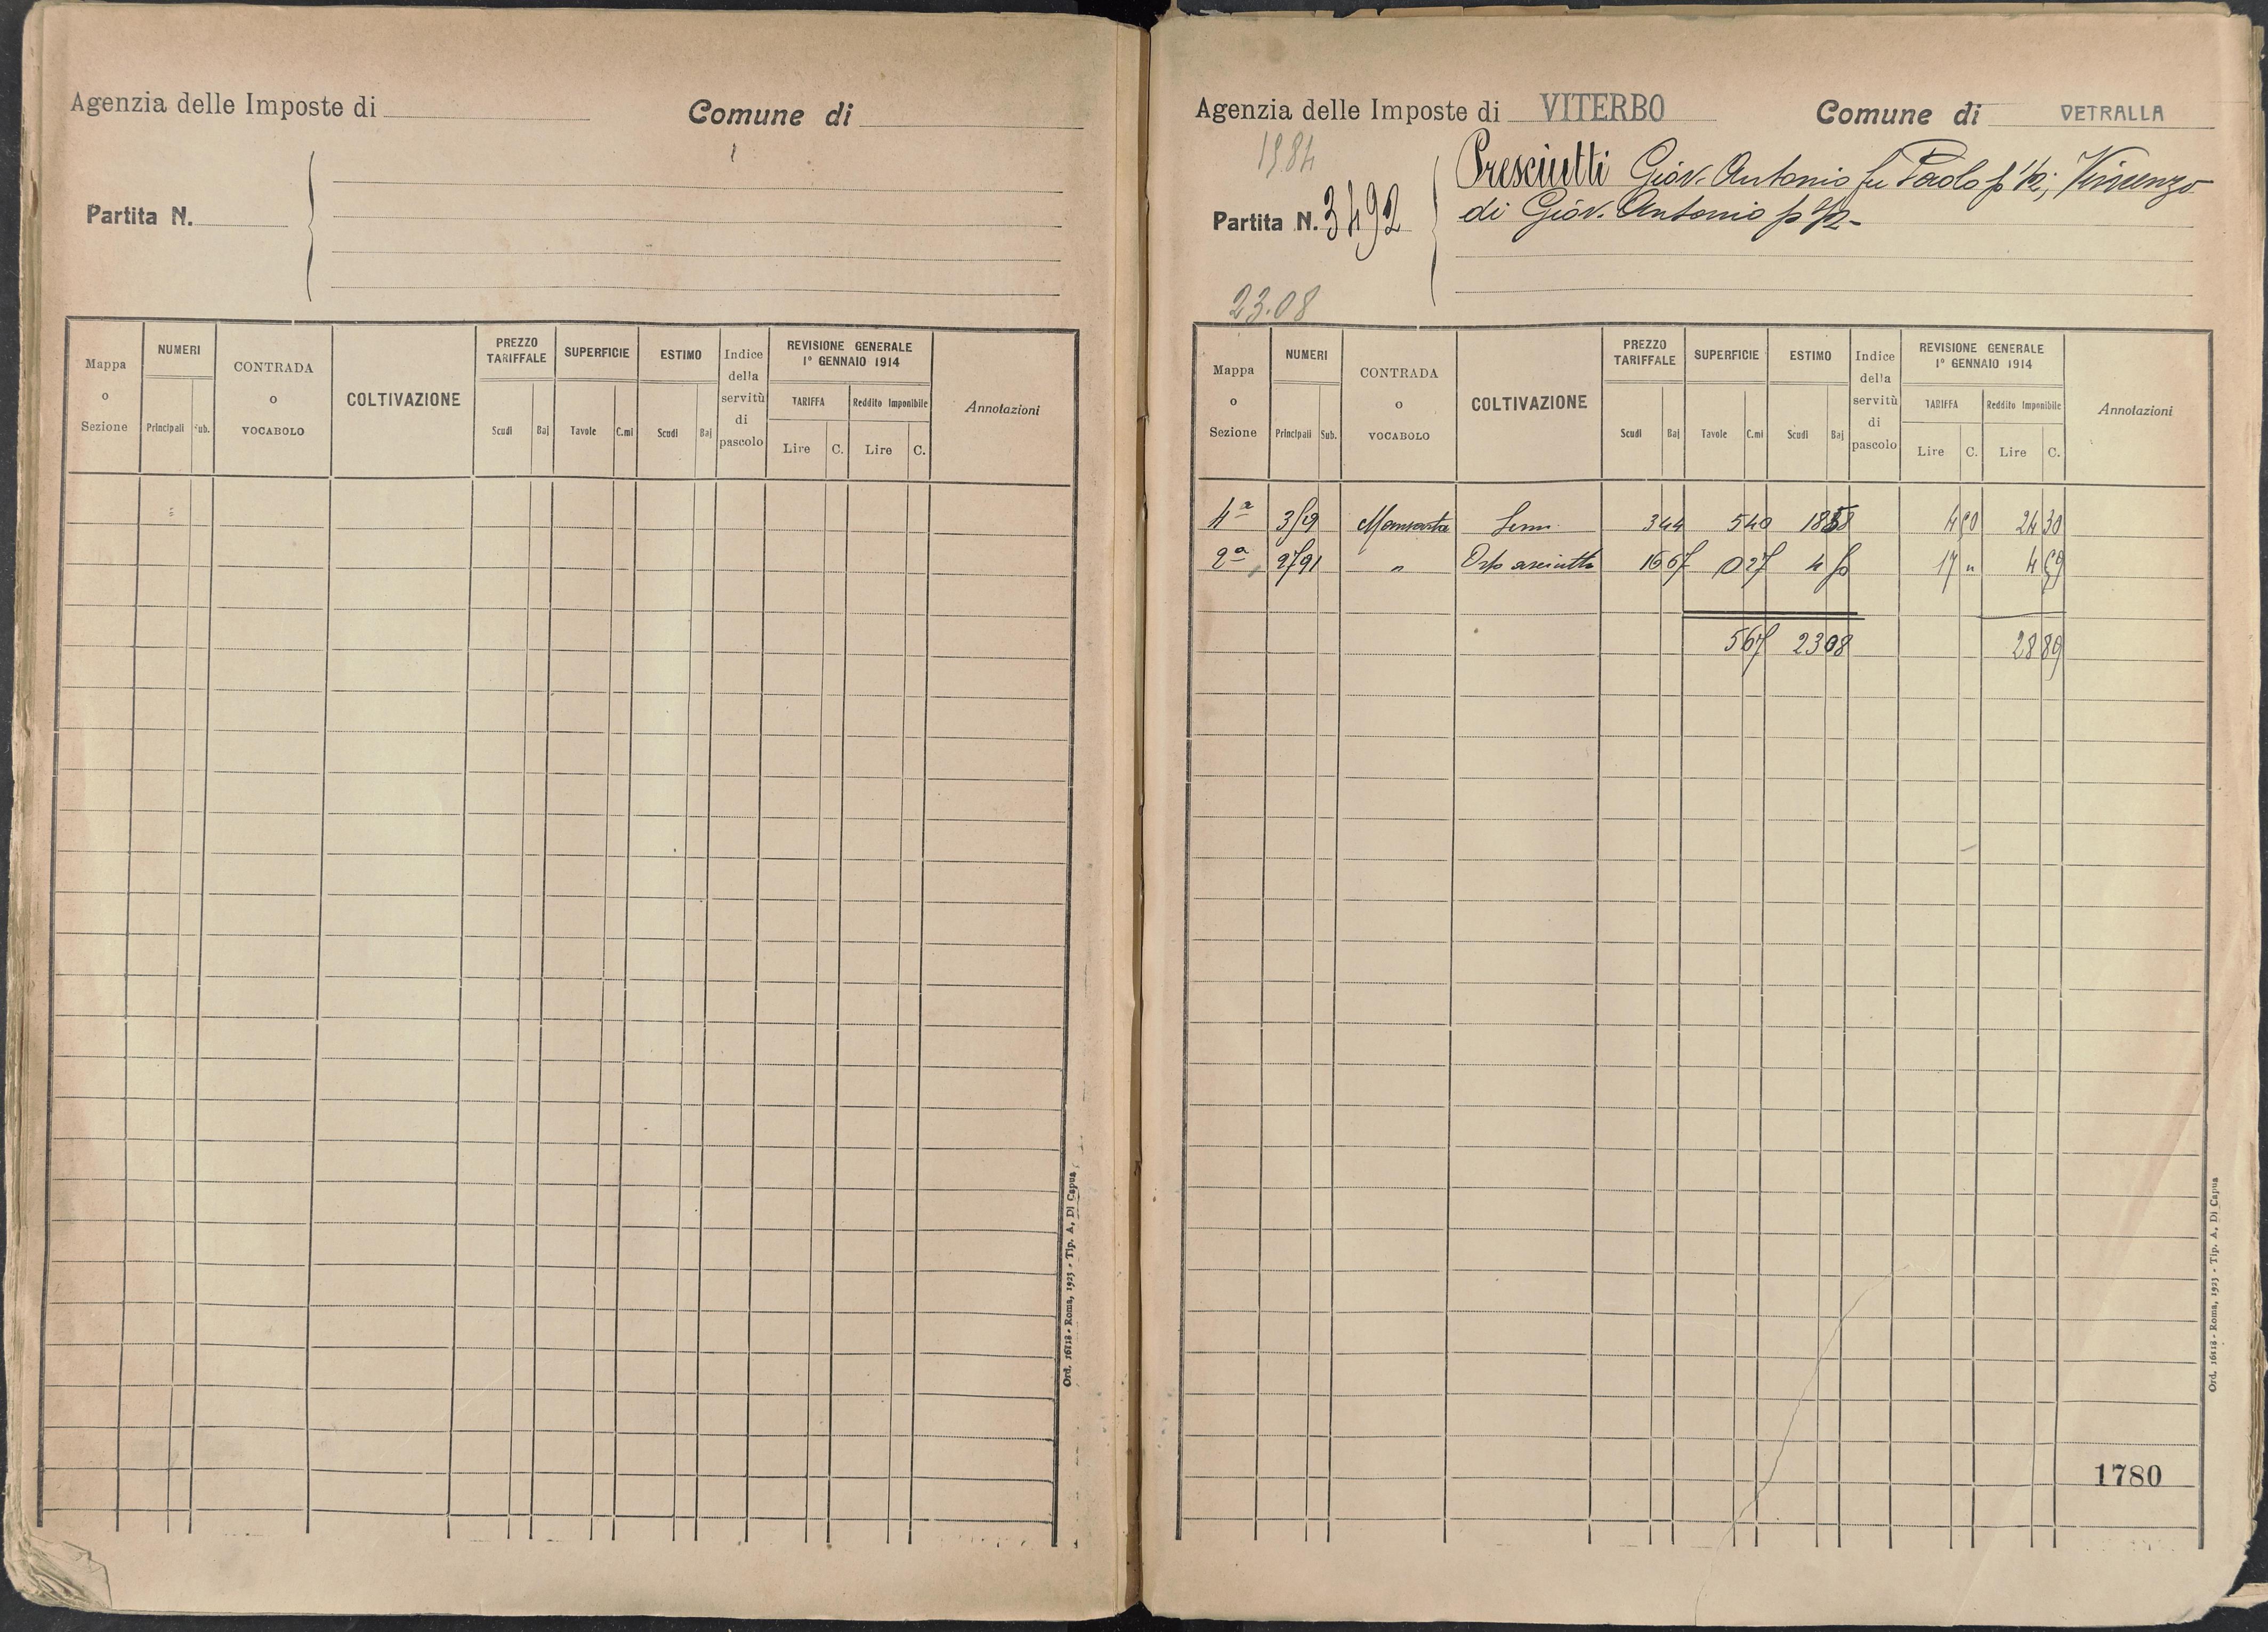 Agenzia delle Imposte di
Comune di
Partita N.
Mappa o Sezione
NUMERI
Principali
Sub.
CONTRADA o VOCABOLO
COLTIVAZIONE
PREZZO TARIFFALE
Scudi
Baj
SUPERFICIE
Tavole
C.mi
ESTIMO
Scudi
Baj
Indice della servitù di pascolo
REVISIONE GENERALE
1° GENNAIO 1914
TARIFFA
Reddito Imponibile
Lire
C.
Lire
C.
Annotazioni
Ord. 16118 - Roma, 1923 - Tip. A. Di Capua
Agenzia delle Imposte di VITERBO
Comune di VETRALLA
1984
Partita N. 3492
Presciutti Giov. Antonio fu Paolo p 1/2; Vincenzo
di Giov. Antonio p 1/2
23.08
Mappa o Sezione
NUMERI
Principali
Sub.
CONTRADA o VOCABOLO
COLTIVAZIONE
PREZZO TARIFFALE
Scudi
Baj
SUPERFICIE
Tavole
C.mi
ESTIMO
Scudi
Baj
Indice della servitù di pascolo
REVISIONE GENERALE
1° GENNAIO 1914
TARIFFA
Reddito Imponibile
Lire
C.
Lire
C.
Annotazioni
4ª Sem. 3 44 5 40 18 58 4 50 24 30
2ª 2791 " Orto asciutto 16 67 0 27 4 50 17 " 4 59
5 67 23 08 28 89
1780
Ord. 16118 - Roma, 1923 - Tip. A. Di Capua